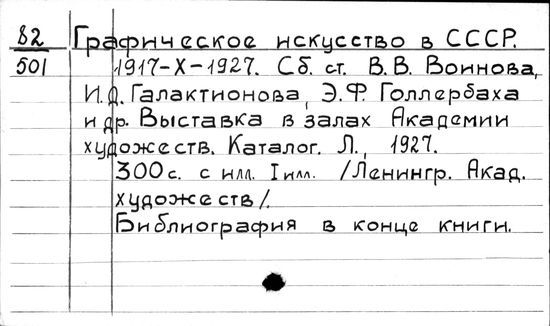 82 Графическое искусство в СССР.
501 1917-X-1927. Сб. ст. В.В. Воинова,
И.Д. Галактионова, Э.Ф. Голлербаха
и др. Выставка в залах Академии
художеств. Каталог. Л., 1927.
300 с. с илл. 1 илл. /Ленингр. Акад.
художеств/.
Библиография в конце книги.